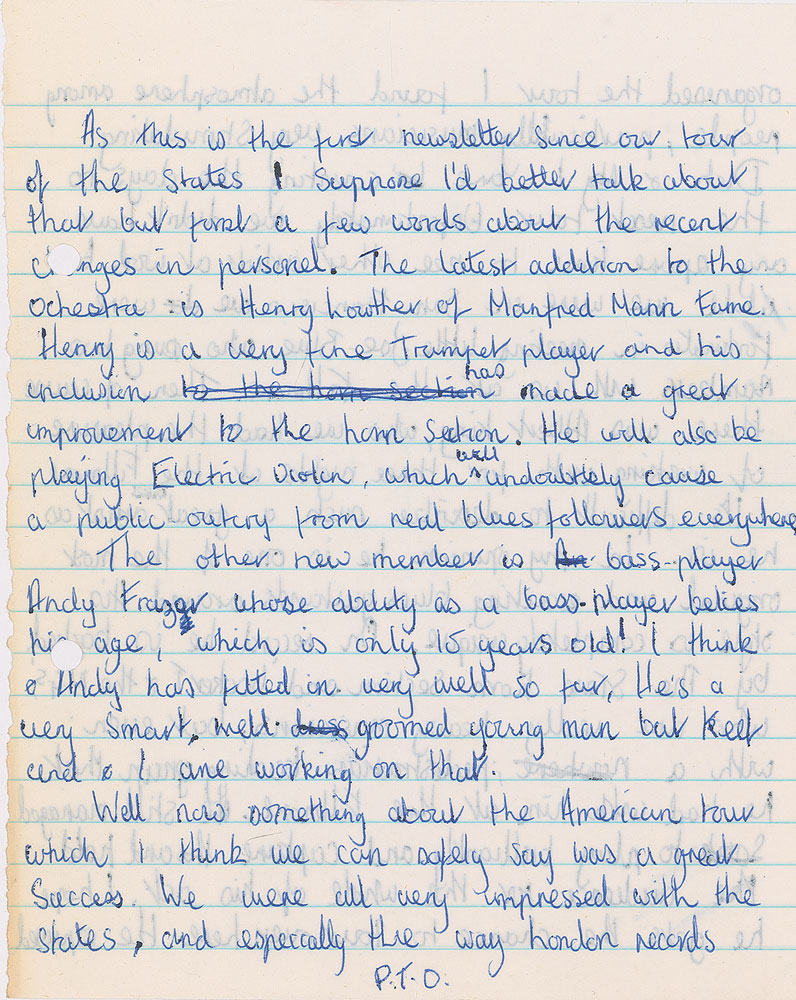 As this is the first newsletter since our tour
of the States I suppose I'd better talk about
that but first a few words about the recent
changes in personel. The latest addition to the
Ochestra is Henry Lowther of Manfred Mann Fame.
Henry is a very fine Trumpet player and his
inclusion to the horn section has made a great
improvement to the horn section. He will also be
playing Electric Violin, which will undoubtely cause
a public outcry from real blues followers everywhere
The other new member is bass-player
Andy Frazer whose ability as a bass-player belies
his age, which is only 15 years old! I think
Andy has fitted in very well so far, He's a
very smart, well dress groomed young man but Keef
and I are working on that.
Well now something about the American tour
which I think we can safely say was a great
Success. We were all very impressed with the
States, and especcally the way London records
P.T.O.